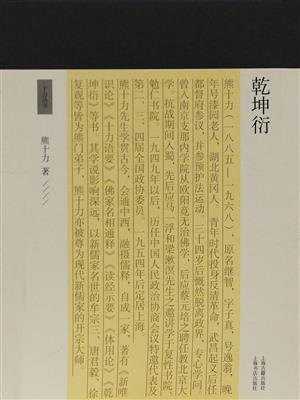 乾坤衍
熊十力（一八八五—一九六八），原名继智，字子真，号逸翁，晚
年号漆园老人，湖北黄冈人。青年时代投身反清革命，武昌起义后任
都督府参议，并参预护法运动。三十四岁后慨然脱离政界，专心学问。
曾入南京支那内学院从欧阳竟无治佛学，后应蔡元培之聘任教北京大
学。抗战期间入蜀，先后应马一浮和梁漱溟先生之邀讲学于复性书院、
勉仁书院。一九四九年以后，历任中国人民政治协商会议特邀代表及
第二、三、四届全国政协委员。一九五四年后定居上海。
熊十力先生学贯古今，会通中西，融摄儒释，自成一家，著有《新唯
识论》《十力语要》《佛家名相通释》《读经示要》《体用论》《乾
坤衍》等书，其学说影响深远，以新儒家名世的牟宗三、唐君毅、徐
复观等皆为熊门弟子，熊十力亦被尊为现代新儒家的开宗大师
熊十力 著
上海古籍出版社
上海书店出版社